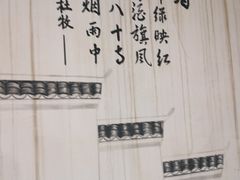 绿映红
酒旗风
八十寺
烟雨中
杜牧